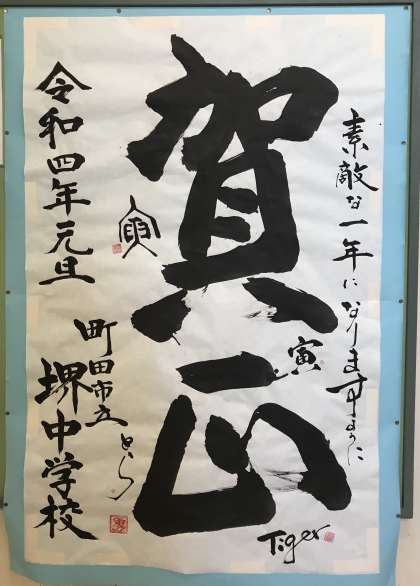 素敵な一年になりますように
賀正
寅
Tiger
寅
とら
町田市立
堺中学校
令和四年元旦